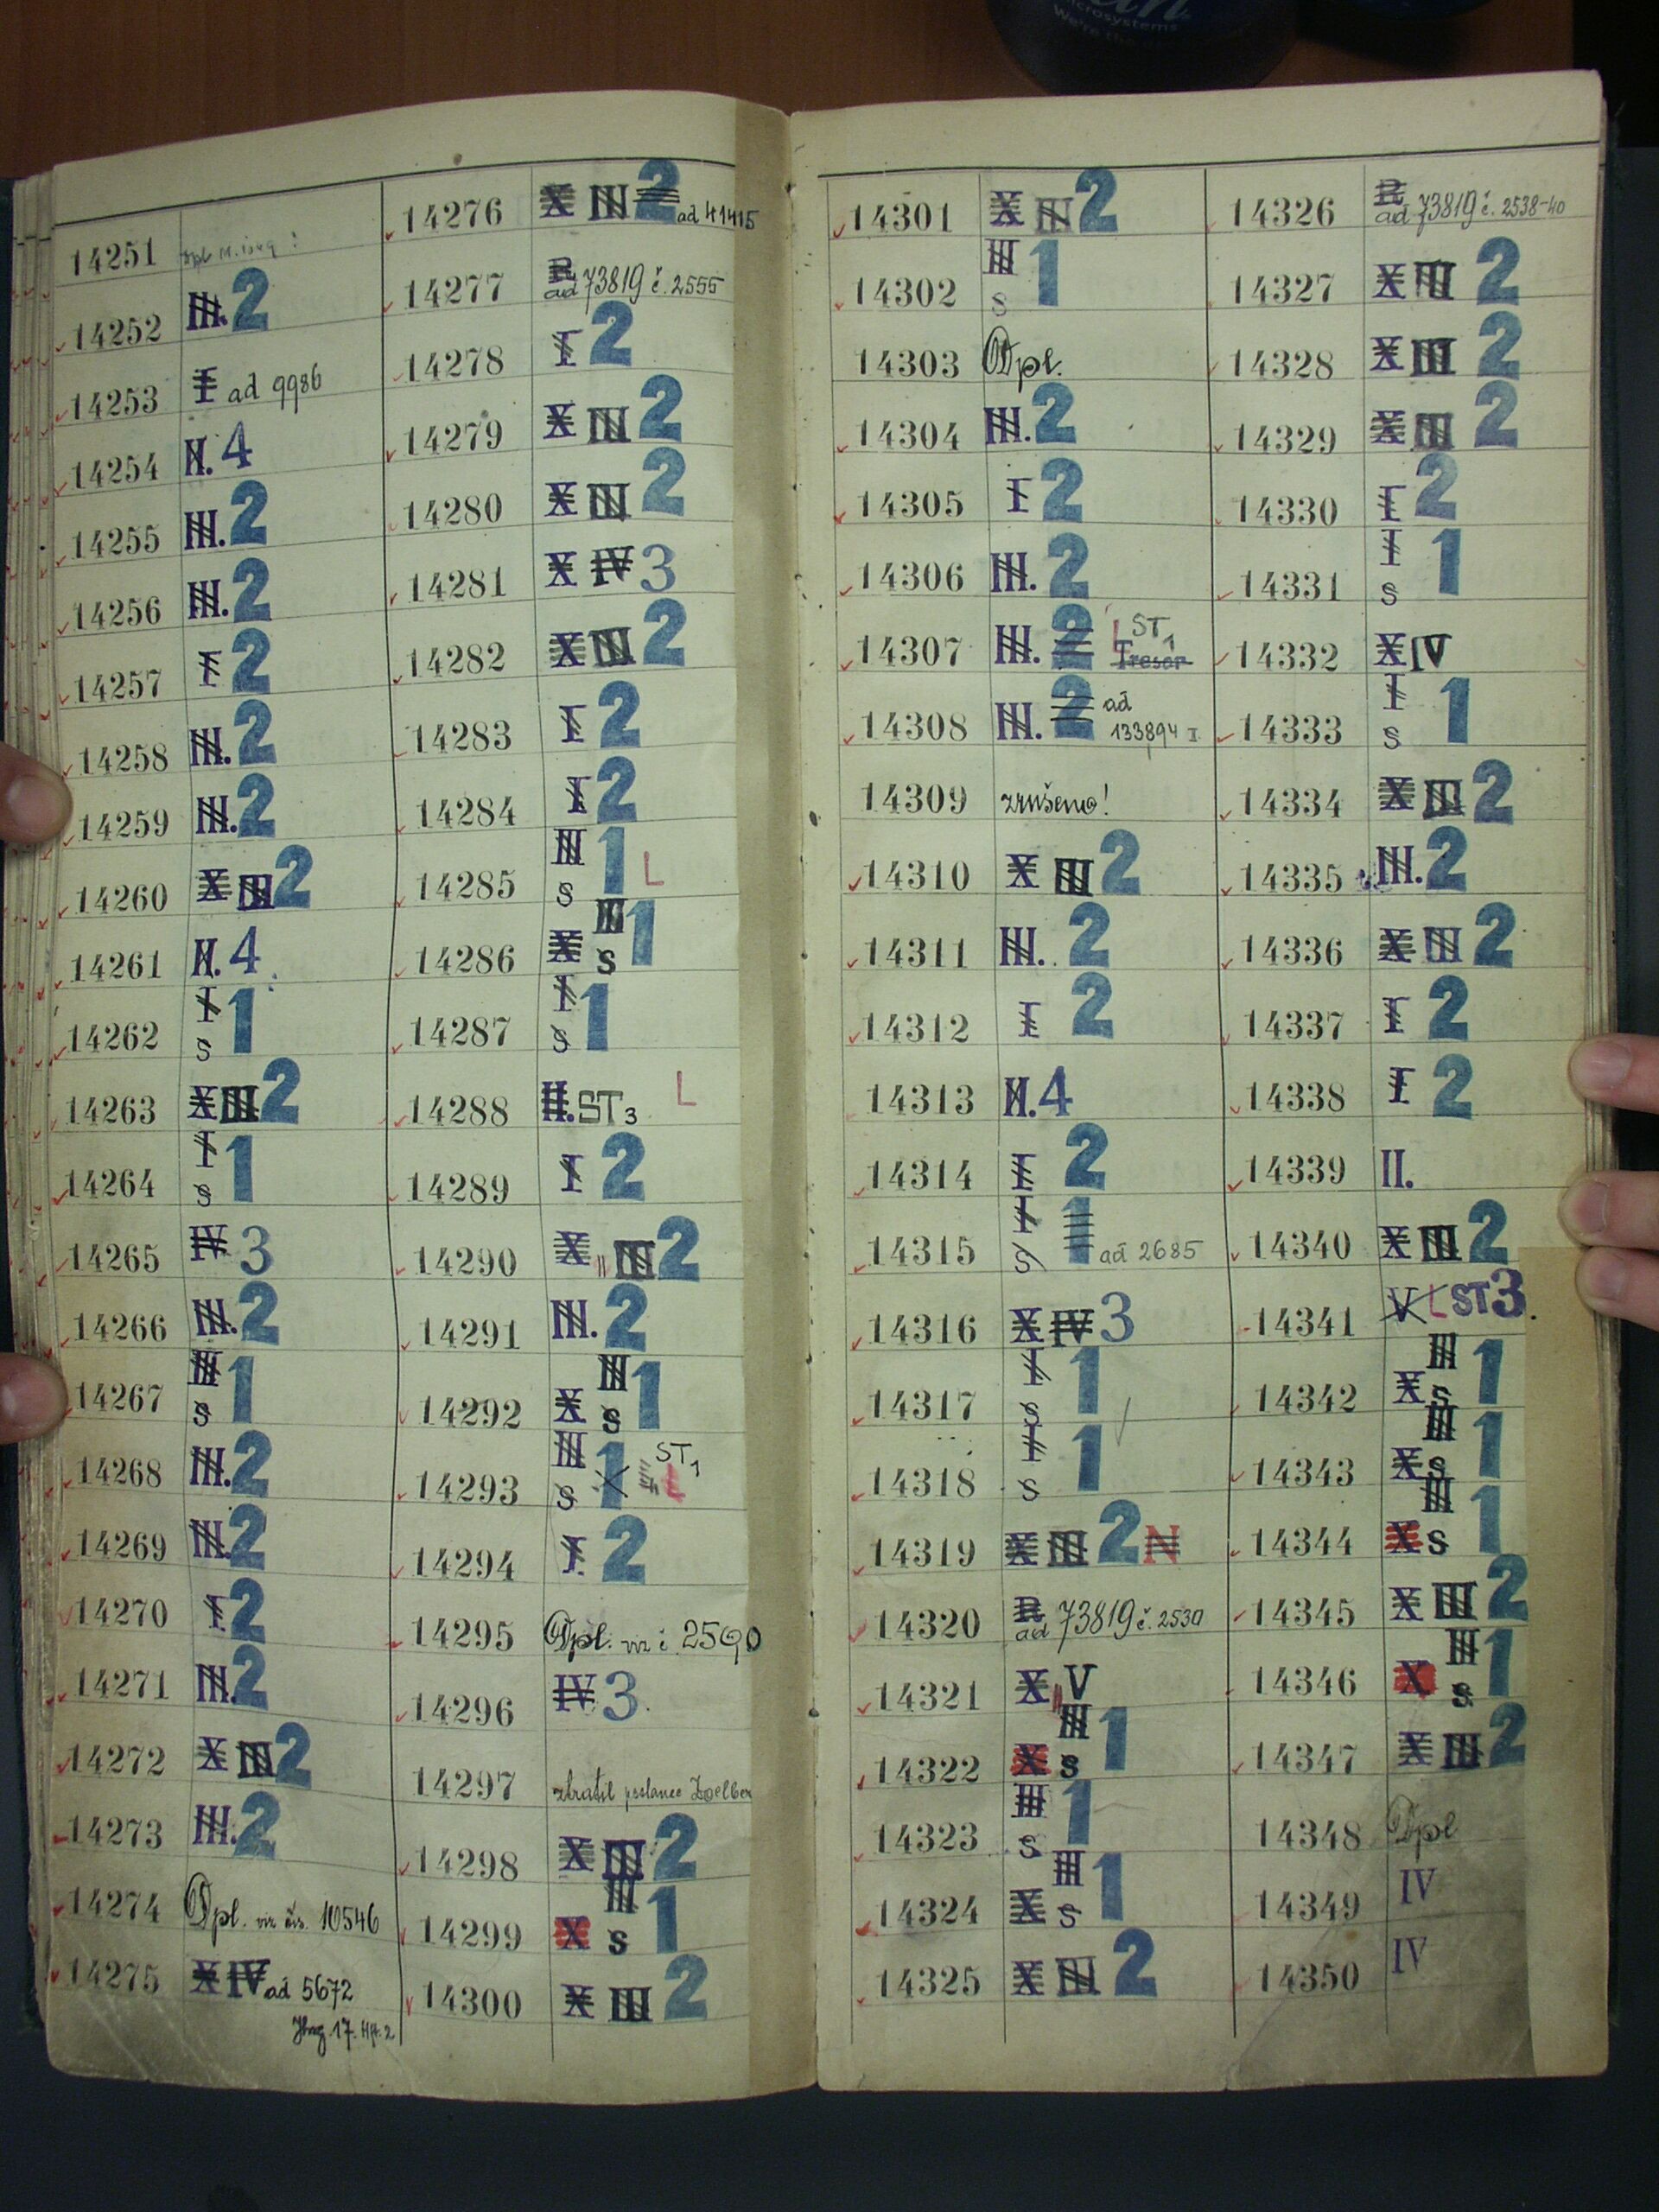 microsystems
We're the
14251
14252 III. 2
14253 I ad 9986
14254 II. 4
14255 III. 2
14256 III. 2
14257 I 2
14258 III. 2
14259 III. 2
14260 X III 2
14261 II. 4
14262 I s 1
14263 X III 2
14264 I s 1
14265 IV 3
14266 III. 2
14267 III s 1
14268 III. 2
14269 III. 2
14270 I. 2
14271 III. 2
14272 X III 2
14273 III. 2
14274 Dpl. viz čís. 10546
14275 X IV ad 5672
14276 X III 2 ad 41415
14277 R ad 73819 č. 2555
14278 I 2
14279 X III 2
14280 X III 2
14281 X IV 3
14282 X III 2
14283 I 2
14284 I 2
14285 III s 1 L
14286 X III s 1
14287 I s 1
14288 II. ST3 L
14289 I 2
14290 X III 2
14291 III. 2
14292 X III s 1
14293 III s 1 ST1 L
14294 I. 2
14295 Dpl. viz č. 2590
14296 IV 3
14297 ztratil poslanec
14298 X III 2
14299 X III s 1
14300 X III 2
14301 X III 2
14302 III s 1
14303 Dpl.
14304 III. 2
14305 I 2
14306 III. 2
14307 III. 2 L ST1 Tresor
14308 III. 2 ad 133894 I
14309 zrušeno!
14310 X III 2
14311 III. 2
14312 I 2
14313 II. 4
14314 I 2
14315 I s 1 ad 2685
14316 X IV 3
14317 I s 1
14318 I s 1
14319 X III 2 N
14320 R ad 73819 č. 2530
14321 X V
14322 X III s 1
14323 III s 1
14324 X III s 1
14325 X III 2
14326 R ad 73819 č. 2538-40
14327 X III 2
14328 X III 2
14329 X III 2
14330 I 2
14331 I s 1
14332 X IV
14333 I s 1
14334 X III 2
14335 III. 2
14336 X III 2
14337 I 2
14338 I 2
14339 II.
14340 X III 2
14341 V L ST3.
14342 X III s 1
14343 X III s 1
14344 X III s 1
14345 X III 2
14346 X III s 1
14347 X III 2
14348 Dpl
14349 IV
14350 IV